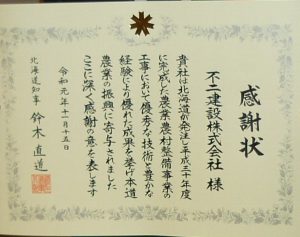 感謝状
不二建設株式会社 様
貴社は北海道が発注し平成三十年度
に完成した農業農村整備事業の
工事において優秀な技術と豊かな
経験により優れた成果を挙げ本道
農業の振興に寄与されました
ここに深く感謝の意を表します
令和元年十一月十五日
北海道知事 鈴木直道